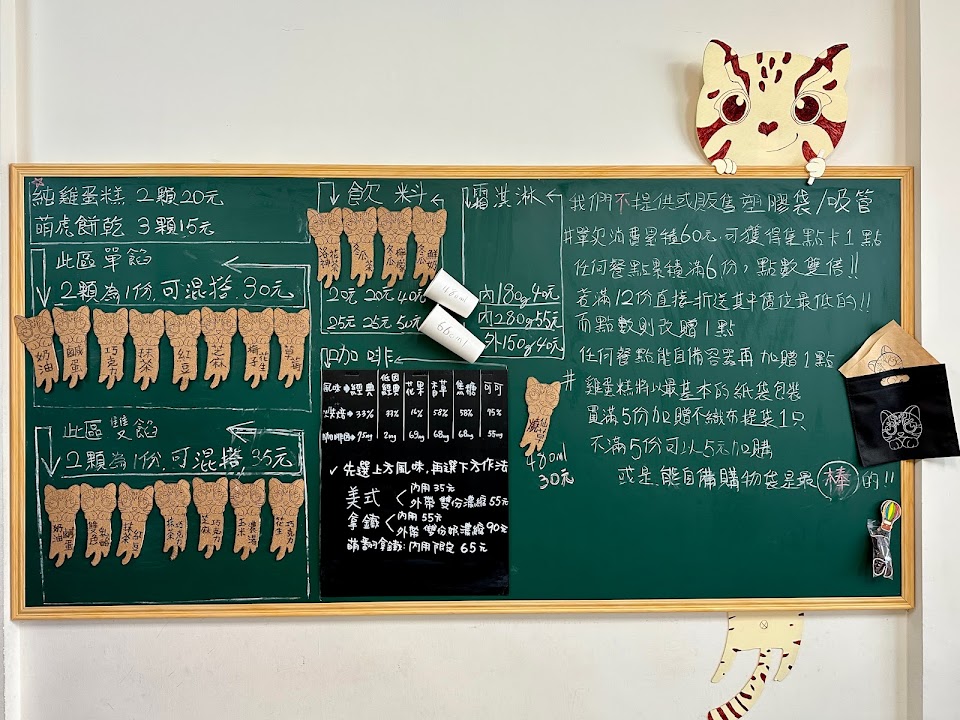 純雞蛋糕 2顆20元
萌虎餅乾 3顆15元
此區單餡
2顆為1份,可混搭.30元
奶油
鹹蛋
巧克力
抹茶
紅豆
芝麻
花生
草莓
此區雙餡
2顆為1份,可混搭35元
奶油
鹹蛋
雙色
抹茶
紅豆
巧克力
抹茶
芝麻
玉米
濃湯
花生
巧克力
飲料
洛神
冬瓜茶
冬瓜
檸檬
冬瓜
鮮奶
20元 20元 40元
25元 25元 50元
480ml
660ml
霜淇淋
內180g 40元
內280g 55元
外150g 40元
咖啡
風味→ 經典 低因經典 花果 杏草 焦糖 可可
烘烤 33% 33% 16% 58% 58% 95%
咖啡因 75mg 2mg 69mg 68mg 68mg 55mg
✓先選上方風味,再選下方作法
美式 內用 35元
外帶 雙份濃縮 55元
拿鐵 內用 55元
外帶 雙份濃縮 90元
萌翻拿鐵:內用限定 65元
仙草
480ml
30元
我們不提供或販售塑膠袋/吸管
#單次消費累積60元.可獲得集點卡1點
任何餐點累積滿6份,點數雙倍!!
若滿12份直接折送其中價位最低的!!
而點數則改贈1點
任何餐點能自備容器再加贈1點
# 雞蛋糕將以最基本的紙袋包裝
買滿5份加贈不織布提袋1只
不滿5份可以5元加購
或是能自備購物袋是最棒的!!